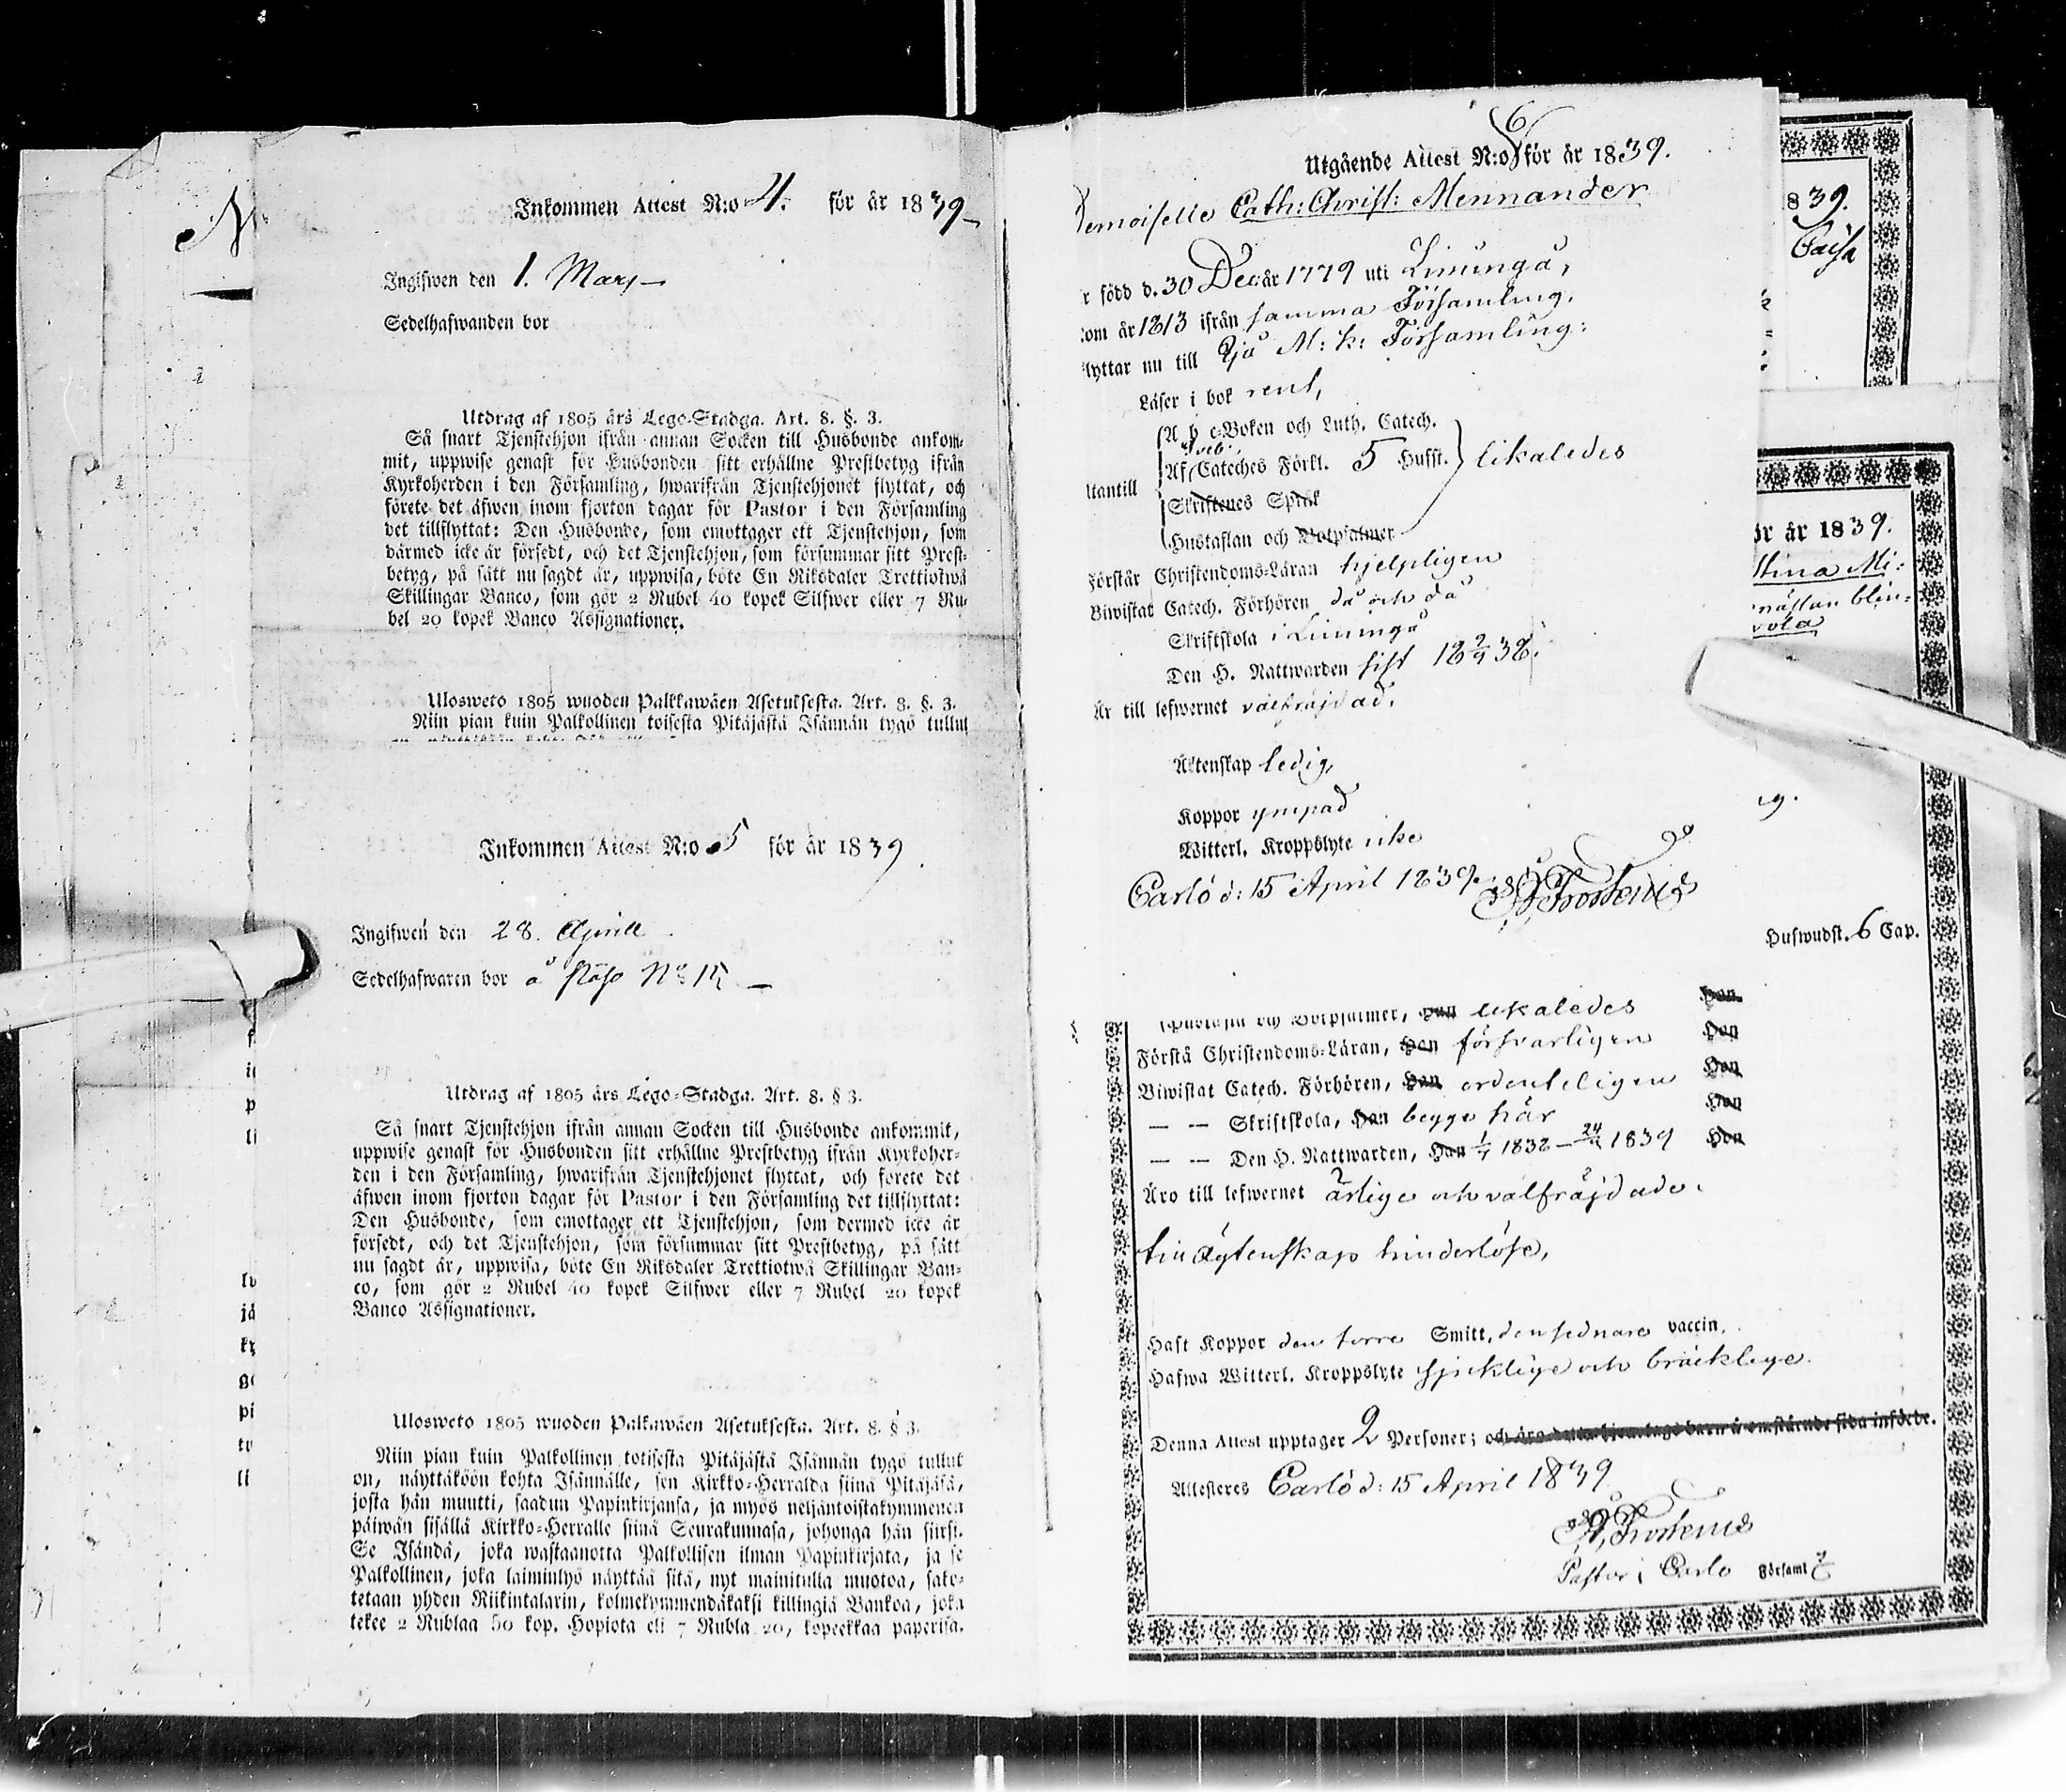 Inkommen Attest N:o 4. för år 1839
Ingifwen den 1. Mars
Sedelhafwanden bor
Utdrag af 1805 års Lego-Stadga. Art. 8. §. 3.
Så snart Tjenstehjon ifrån annan Socken till Husbonde ankom-
mit, uppwise genast för Husbonden sitt erhållne Prestbetyg ifrån
Kyrkoherden i den Församling, hwarifrån Tjenstehjonet flyttat, och
förete det äfwen inom fjorton dagar för Pastor i den Församling
det tillflyttat: Den Husbonde, som emottager ett Tjenstehjon, som
därmed icke är försedt, och det Tjenstehjon, som försummar sitt Prest-
betyg, på sätt nu sagdt är, uppwisa, böte En Riksdaler Trettiotwå
Skillingar Banco, som gör 2 Rubel 40 kopek Silfwer eller 7 Ru-
bel 20 kopek Banco Assignationer.
Ulosweto 1805 wuoden Palkkawäen Asetuksesta. Art. 8. §. 3.
Niin pian kuin Palkollinen toisesta Pitäjästä Isännän tygö tullut
Inkommen Attest N:o 5 för år 1839
Ingifwen den 28. Aprill
Sedelhafwaren bor å
Utdrag af 1805 års Lego-Stadga. Art. 8. § 3.
Så snart Tjenstehjon ifrån annan Socken till Husbonde ankommit,
uppwise genast för Husbonden sitt erhållne Prestbetyg ifrån Kyrkoher-
den i den Församling, hwarifrån Tjenstehjonet flyttat, och förete det
äfwen inom fjorton dagar för Pastor i den Församling det tillflyttat:
Den Husbonde, som emottager ett Tjenstehjon, som dermed icke är
försedt, och det Tjenstehjon, som försummar sitt Prestbetyg, på sätt
nu sagdt är, uppwisa, böte En Riksdaler Trettiotwå Skillingar Ban-
co, som gör 2 Rubel 40 kopek Silfwer eller 7 Rubel 20 kopek
Banco Assignationer.
Ulosweto 1805 wuoden Palkawäen Asetuksesta. Art. 8. § 3.
Niin pian kuin Palkollinen totisesta Pitäjästä Isännän tygö tullut
on, näyttäköön kohta Isännälle, sen Kirkko-Herralda siinä Pitäjäsä,
josta hän muutti, saadun Papinkirjansa, ja myös neljäntoistakymmenen
päiwän sisällä Kirkko-Herralle siinä Seurakunnasa, johonga hän siirsi.
Se Isändä, joka wastaanotta Palkollisen ilman Papinkirjata, ja se
Palkollinen, joka laiminlyö näyttää sitä, nyt mainitulla muotoa, sako-
tetaan yhden Riikintalarin, kolmekymmendäkaksi killingiä Bankoa, joka
tekee 2 Rublaa 50 kop. Hopiota eli 7 Rubla 20, kopeekkaa paperisa.
6
Utgående Attest N:o för år 1839.
Demoiselle Cath: Christ: Mennander
r född d. 30 Dec: år 1779 uti Limingå,
kom år 1813 ifrån samma Församling.
flyttar nu till Ijå M: k: Församling:
Läser i bok rent,
A b c-Boken och Luth. Catech.
Af Cateches Förkl. 5 Hufst. likaledes
Utantill
Skriftenes Språk
Hustaflan och Botpsalmer
Förstår Christendoms-Läran hjelpligen
Biwistat Catech. Förhören då och då
Skriftskola i Limingå
Den H. Nattwarden sist 18 2/9 38.
Är till lefwernet välfräjdad.
Äktenskap ledig,
Koppor ympad
Witterl. Kroppslyte icke
Carlö d: 15 April 1839.
839.
Caisa
ör år 1839.
stina Mi:
nästan blin:
vola
g.
Hufwudst. 6 Cap.
Botpsalmer, Han likaledes Hon
Förstå Christendoms-Läran, Han försvarligen Hon
Biwistat Catech. Förhören, Han ordenteligen Hon
— — Skriftskola, Han begge här Hon
— — Den H. Nattwarden, Han 1/7 1838 — 24/ 1839 Hon
Äro till lefwernet ärlige och välfräjdade.
till ägtenskap hinderlöse,
Haft Koppor den förre Smitt, den sednare vaccin.
Hafwa Witterl. Kroppslyte sjuklige och bräcklige.
Denna Attest upptager 2 Personer;
Attesteras Carlö d: 15 April 1839
Pastor i Carlö Församl